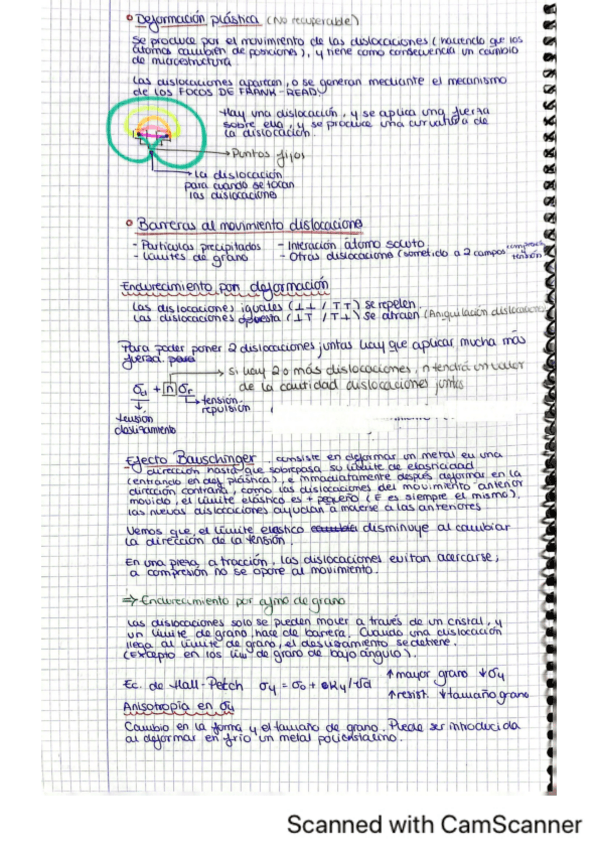 ° Deformación plástica (No recuperable)
Se produce por el movimiento de las dislocaciones (haciendo que los
átomos cambien de posiciones), y tiene como consecuencia un cambio
de microestructura
Las dislocaciones aparecen, o se generan mediante el mecanismo
de los FOCOS DE FRANK-READ
Hay una dislocación, y se aplica una fuerza
sobre ella, y se produce una curvatura de
la dislocación.
Puntos fijos
La dislocación
para cuando se tocan
las dislocaciones
° Barreras al movimiento dislocaciones
- Partículas precipitados - Interación átomo soluto
- Límites de grano - Otras dislocaciones (sometido a 2 campos tensión
Endurecimiento por deformación
Las dislocaciones iguales (⊥⊥ / TT) se repelen.
Las dislocaciones opuesta (⊥T / T⊥) se atraen (Aniquilación dislocación
Para poder poner 2 dislocaciones juntas hay que aplicar mucha más
fuerza.
→ Si hay 2 o más dislocaciones, n tendrá un valor
de la cantidad dislocaciones juntas
σd + n σr
tensión
repulsión
tensión
deslizamiento
Efecto Bauschinger, consiste en deformar un metal en una
dirección hasta que sobrepasa su límite de elasticidad
(entrando en def plástica), e inmediatamente después deformar en la
dirección contraria, como las dislocaciones del movimiento anterior
movido, el límite elástico es + pequeño (E es siempre el mismo).
las nuevas dislocaciones ayudan a moverse a las anteriores
Vemos que, el límite elástico disminuye al cambiar
la dirección de la tensión.
En una pieza a tracción, las dislocaciones evitan acercarse,
a compresión no se opone al movimiento.
⇒ Endurecimiento por afino de grano
Las dislocaciones solo se pueden mover a través de un cristal, y
un límite de grano, hace de barrera. Cuando una dislocación
llega al límite de grano, el deslizamiento se detiene.
(Excepto en los lím de grano de bajo ángulo).
Ec. de Hall-Petch σy = σ0 + Ky/√d ↑mayor grano ↓σy
↑resist. ↓tamaño grano
Anisotropía en σy
Cambio en la forma y el tamaño de grano. Puede ser introducida
al deformar en frío un metal policristalino.
Scanned with CamScanner